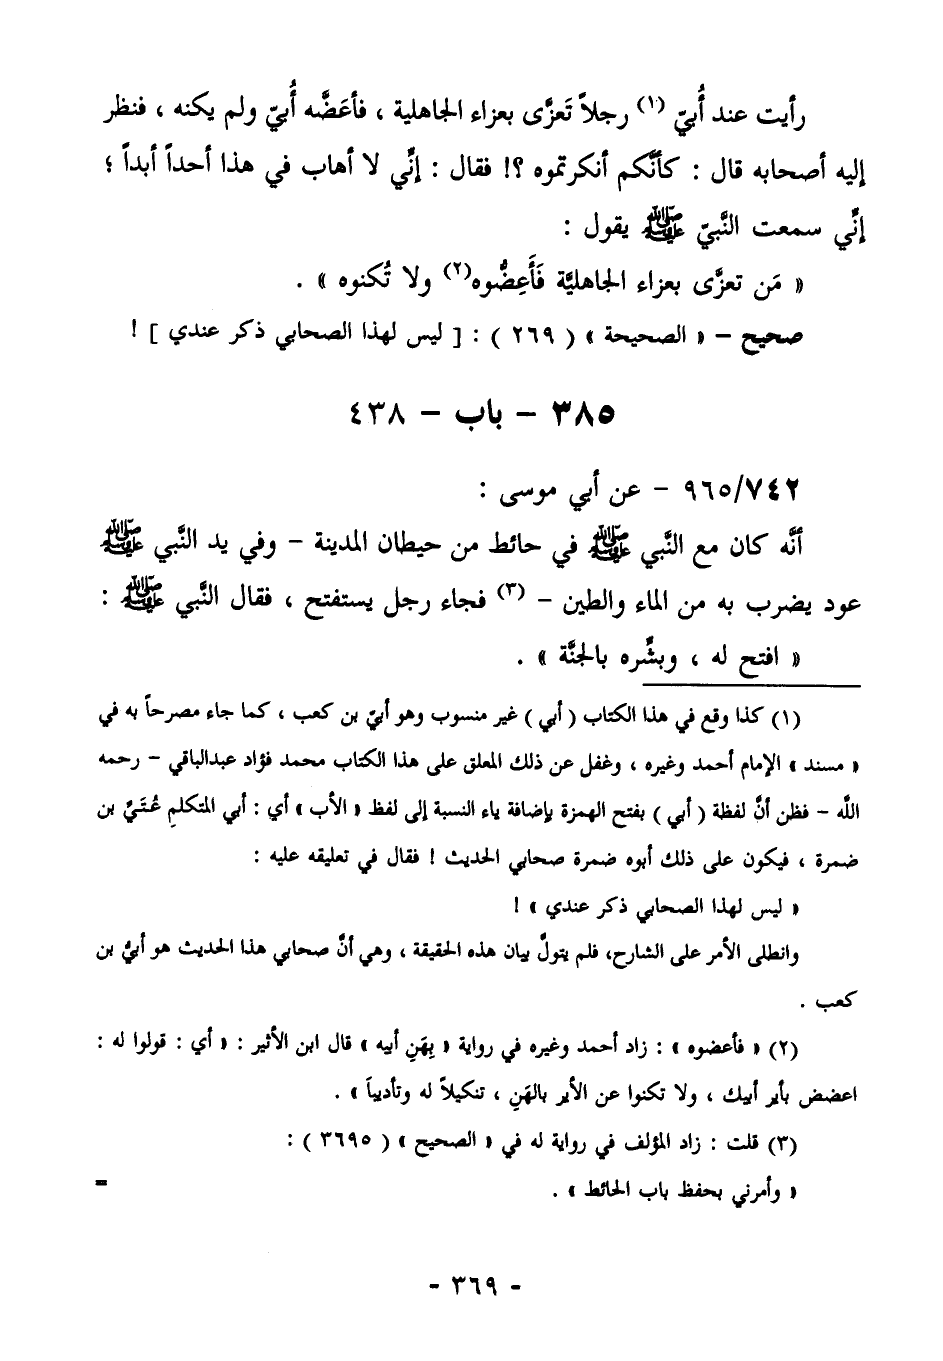 رأيت عند أُبيّ (١) رجلاً تَعزَّى بعزاء الجاهلية ، فأعَضَّه أُبيّ ولم يكنه ، فنظر
إليه أصحابه قال : كأنَّكم أنكرتموه ؟! فقال : إنِّي لا أهاب في هذا أحداً أبداً ؛
إنِّي سمعت النَّبيّ ﷺ يقول :
« مَن تعزَّى بعزاء الجاهليَّة فَأَعِضُّوه(٢) ولا تُكنوه » .
صحيح – « الصحيحة » ( ٢٦٩ ) : [ ليس لهذا الصحابي ذكر عندي ] !
٣٨٥ – باب – ٤٣٨
٩٦٥/٧٤٢ – عن أبي موسى :
أنَّه كان مع النَّبي ﷺ في حائط من حيطان المدينة – وفي يد النَّبي ﷺ
عود يضرب به من الماء والطين – (٣) فجاء رجل يستفتح ، فقال النَّبي ﷺ :
« افتح له ، وبشِّره بالجنَّة » .
(١) كذا وقع في هذا الكتاب ( أبي ) غير منسوب وهو أبيّ بن كعب ، كما جاء مصرحاً به في
« مسند » الإمام أحمد وغيره ، وغفل عن ذلك المعلق على هذا الكتاب محمد فؤاد عبدالباقي – رحمه
اللَّه – فظن أنَّ لفظة ( أبي ) بفتح الهمزة بإضافة ياء النسبة إلى لفظ « الأب » أي : أبي المتكلمِ عُتَيِّ بن
ضمرة ، فيكون على ذلك أبوه ضمرة صحابي الحديث ! فقال في تعليقه عليه :
« ليس لهذا الصحابي ذكر عندي » !
وانطلى الأمر على الشارح، فلم يتولَّ بيان هذه الحقيقة ، وهي أنَّ صحابي هذا الحديث هو أبيُّ بن
كعب .
(٢) « فأعضوه » : زاد أحمد وغيره في رواية « بِهَنِ أبيه » قال ابن الأثير : « أي : قولوا له :
اعضض بأير أبيك ، ولا تكنوا عن الأير بالهَنِ ، تنكيلاً له وتأديباً » .
(٣) قلت : زاد المؤلف في رواية له في « الصحيح » ( ٣٦٩٥ ) :
« وأمرني بحفظ باب الحائط » . =
- ٣٦٩ -